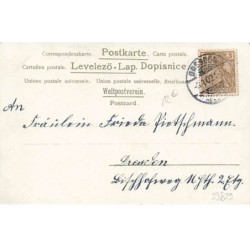 Correspondenzkarte. Postkarte. Carte postale.
Cartolina postale. Levelező-Lap. Dopisnice
Unione postale universale. Union postale universelle.
Weltpostverein.
Postcard.
An
Fräulein Frieda Pietschmann.
Dresden
Bischofsweg